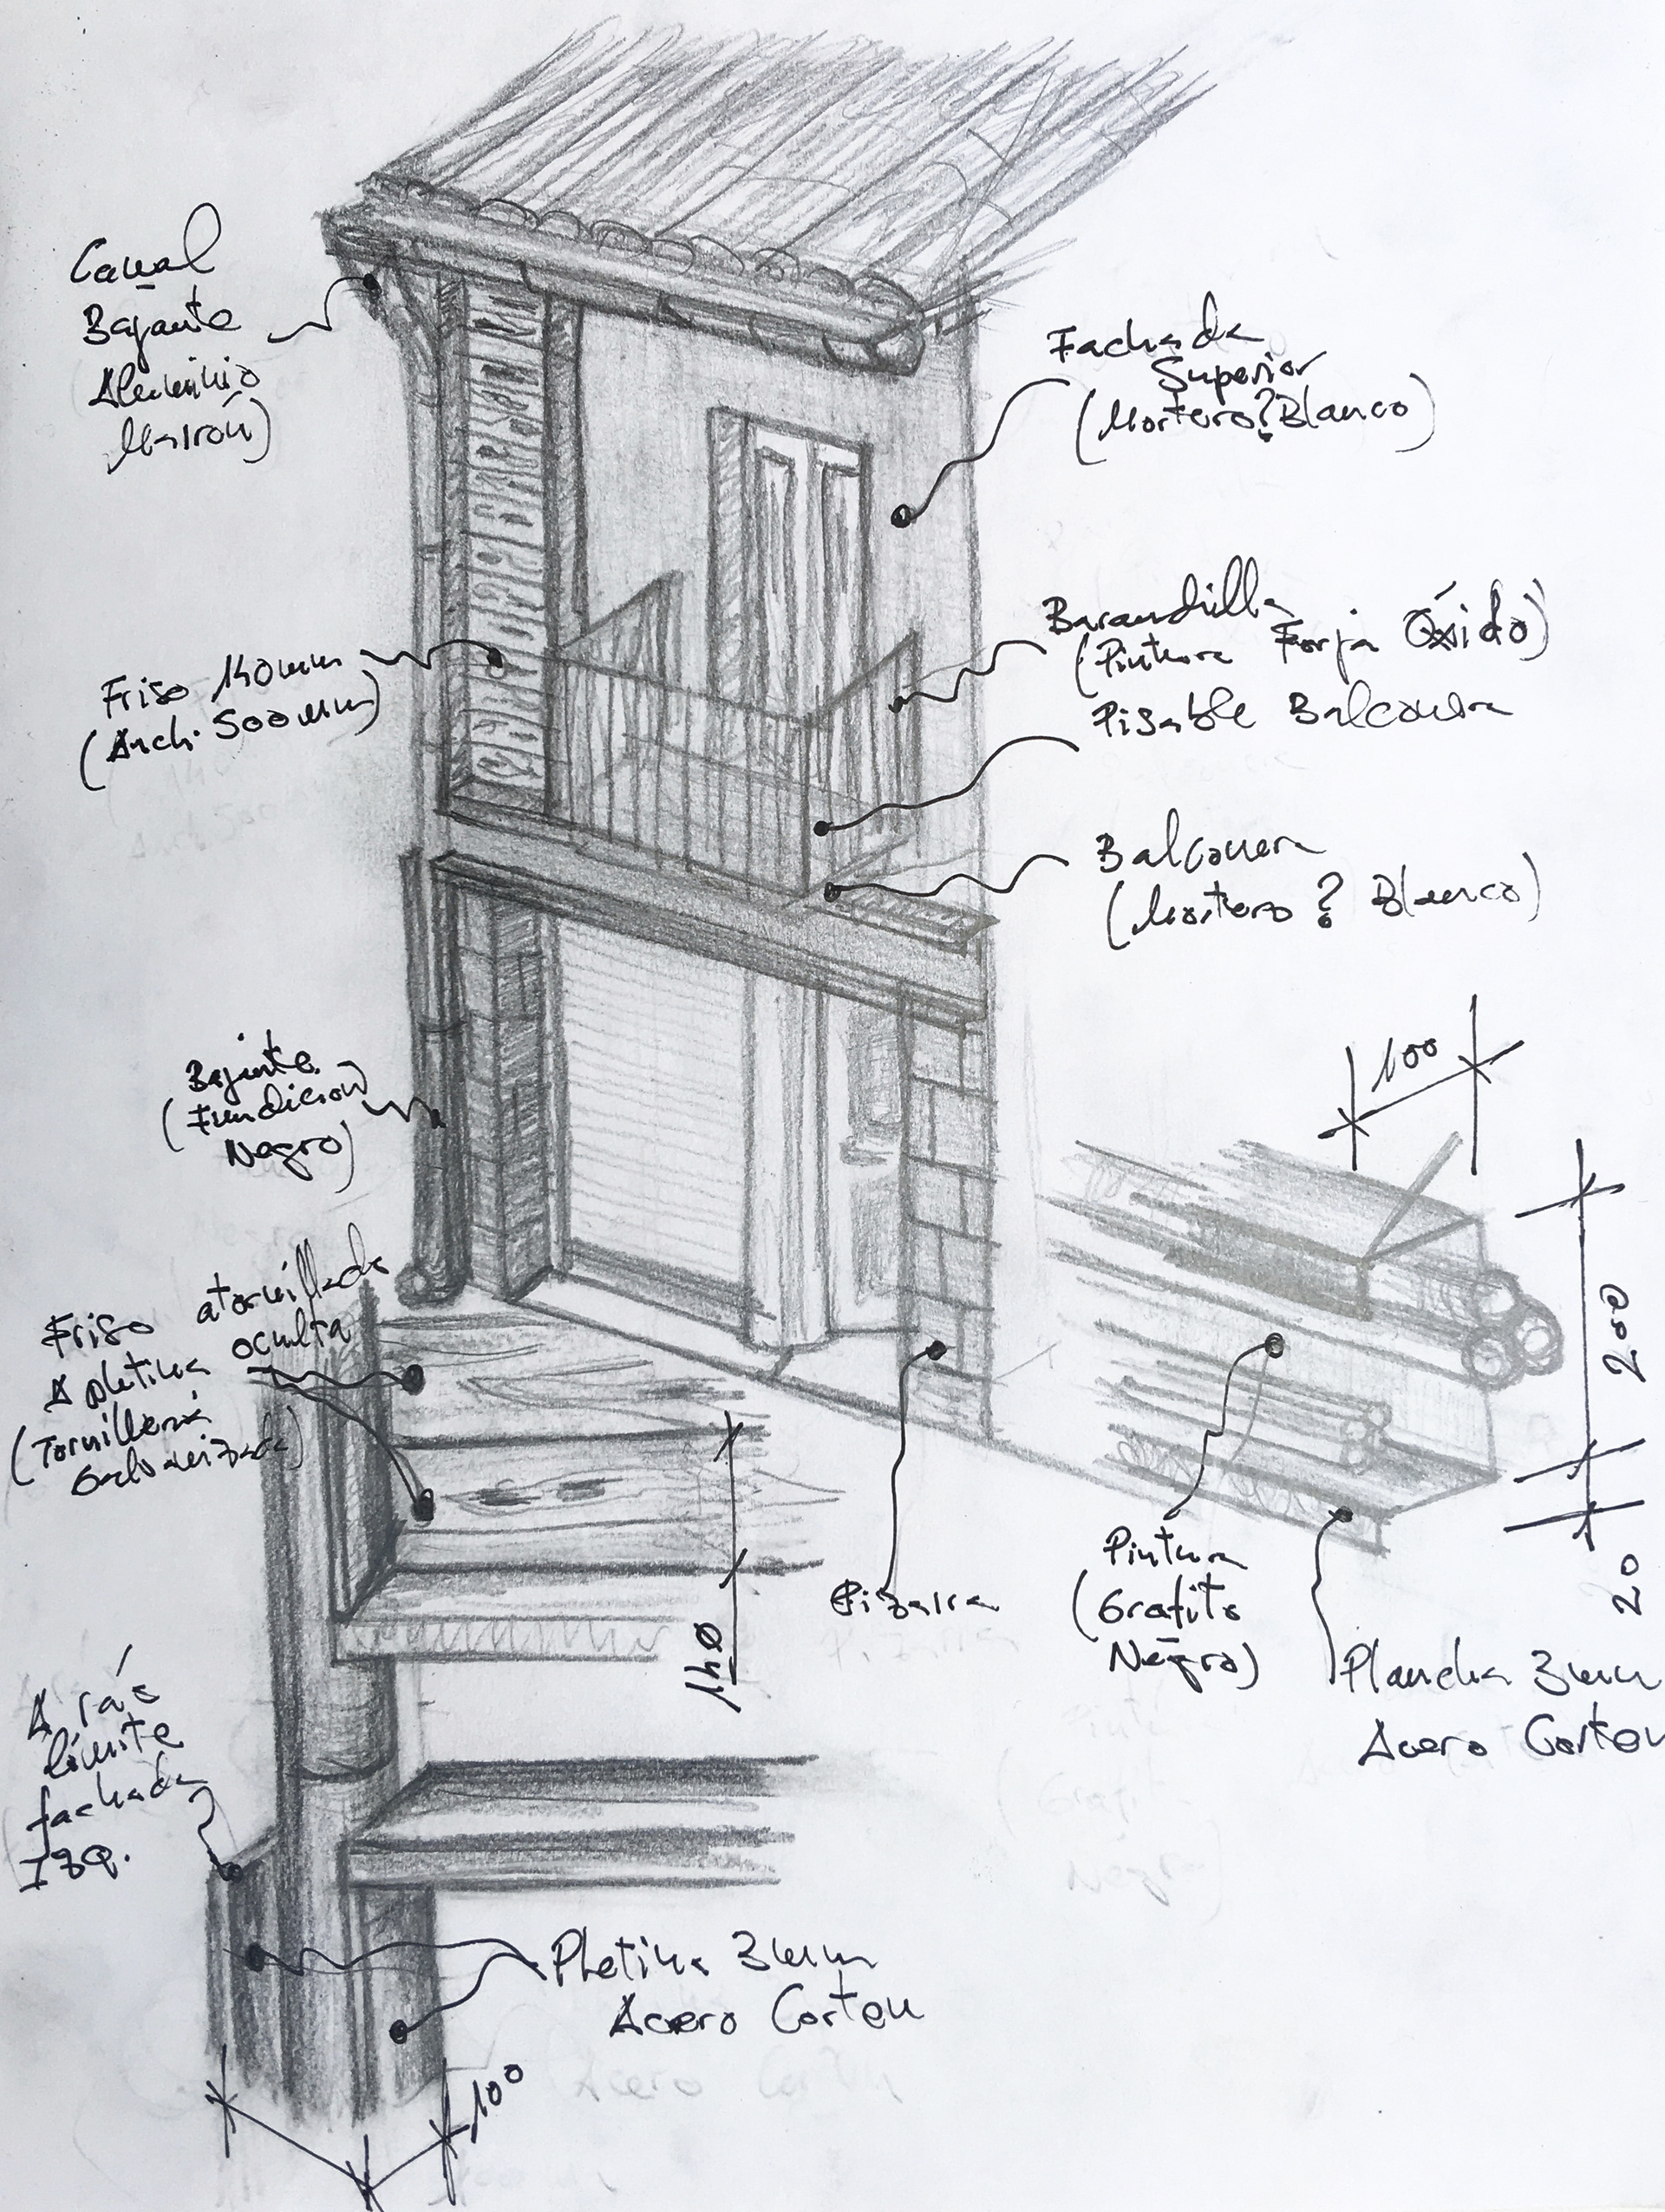 Canal
Bajante
Aluminio
Marrón)
Fachada
Superior
(Mortero? Blanco)
Barandilla
(Pintura Forja Óxido)
Pisable Balconera
Friso 140mm
(Anch. 500mm)
Balconera
(Mortero ? Blanco)
Bajante
(Fundicion
Negro)
100
200
20
Friso atornillado
A pletina oculta
(Tornillería
Galvanizada)
140
Pizarra
Pintura
(Grafito
Negro)
Plancha 3mm
Acero Corten
A rás
límite
fachada
Izq.
Pletina 3mm
Acero Corten
100